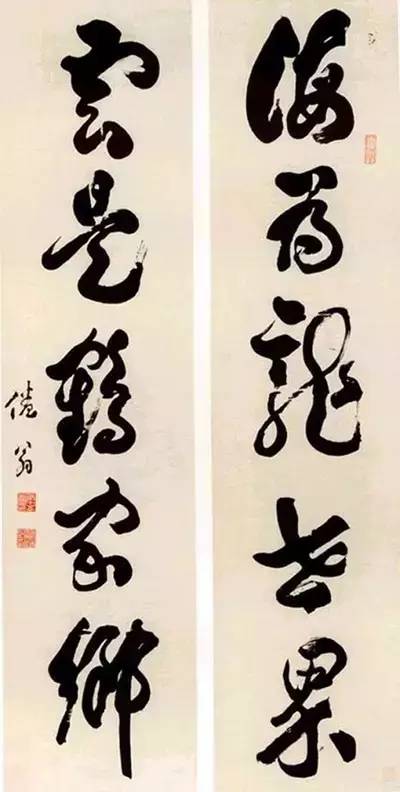 海為龍世界
雲是鶴家鄉
倦翁